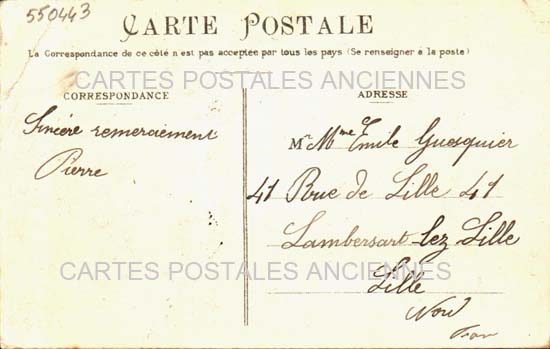 550443
CARTE POSTALE
La Correspondance de ce côté n est pas acceptée par tous les pays (Se renseigner à la poste)
CARTES POSTALES ANCIENNES
CORRESPONDANCE
ADRESSE
Sincère remerciement
Pierre
M Mme Emile Guesquier
41 Rue de Lille 41
Lambersart lez Lille
CARTES POSTALES ANCIENNES
Lille
Nord